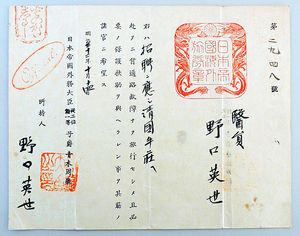 第二九四八號
日本帝
國海外
旅券章
醫員
野口英世
右ハ招聘ニ應シ清国牛莊ヘ
赴クニ付通路故障ナク旅行セシメ且必
要ノ保護扶助ヲ與ヘラレン事ヲ其筋ノ
諸官ニ希望ス
日本帝國外務大臣子爵青木周藏
Official
所持人
野口英世